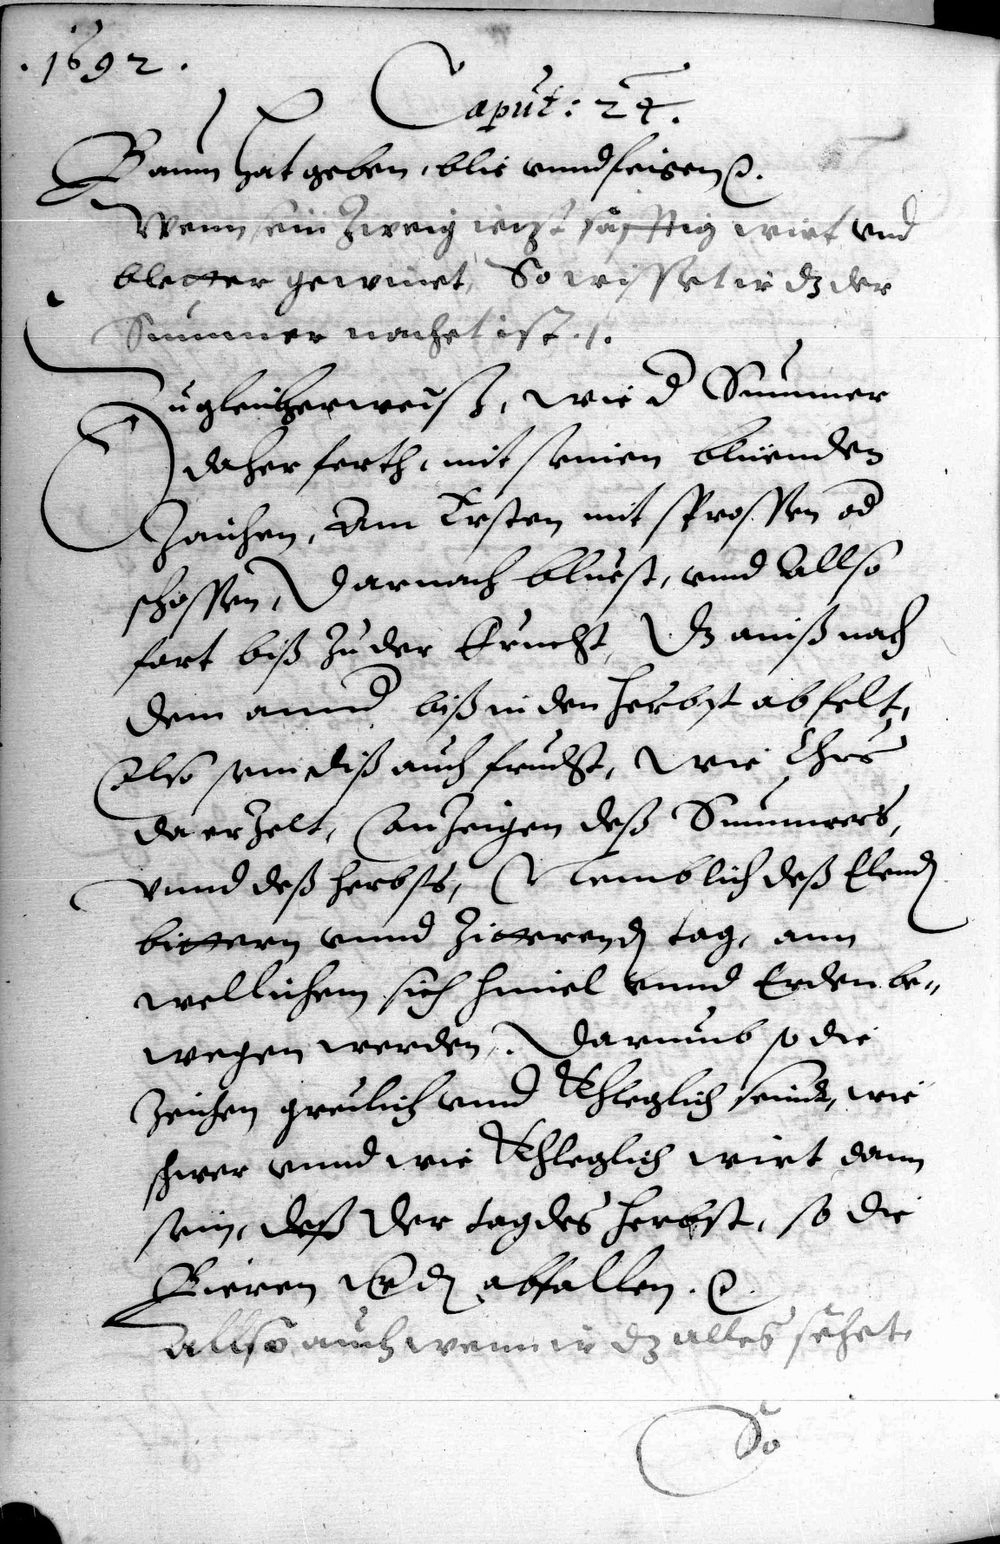 .1692.
Caput: 24.
Baum hat geben, blie unnd feigen
Wenn sein Zweig iezt säfftig wirt und
bletter gewinet, So wisset ir dz der
Summer nachet ist ./.
Zugleicherweiß, wie d Summer
daher ferth, mit seinen blüenden
Zaichen, Am Ersten mit sprossen od
schossen, Darnach bluest, und Allso
fort biß Zu der Frucht, Dz ainß nach
dem annd biß in den herbst abfelt,
Also sein diß auch frücht, wie Chrs
da erzelt, Anzeigen deß Summers,
unnd deß herbsts, Nemblich deß Elend
bittern unnd Zitterend tag, ann
wellichem sich himel unnd Erden be„
wegen werden. Darumb so die
Zeichen greulich unnd Khleglich seind, wie
schwer unnd wie Khleglich wirt dann
sein, der tag des herbst, so die
Bieren abfallen.
Allso auch wenn ir dz alles sehet,
So